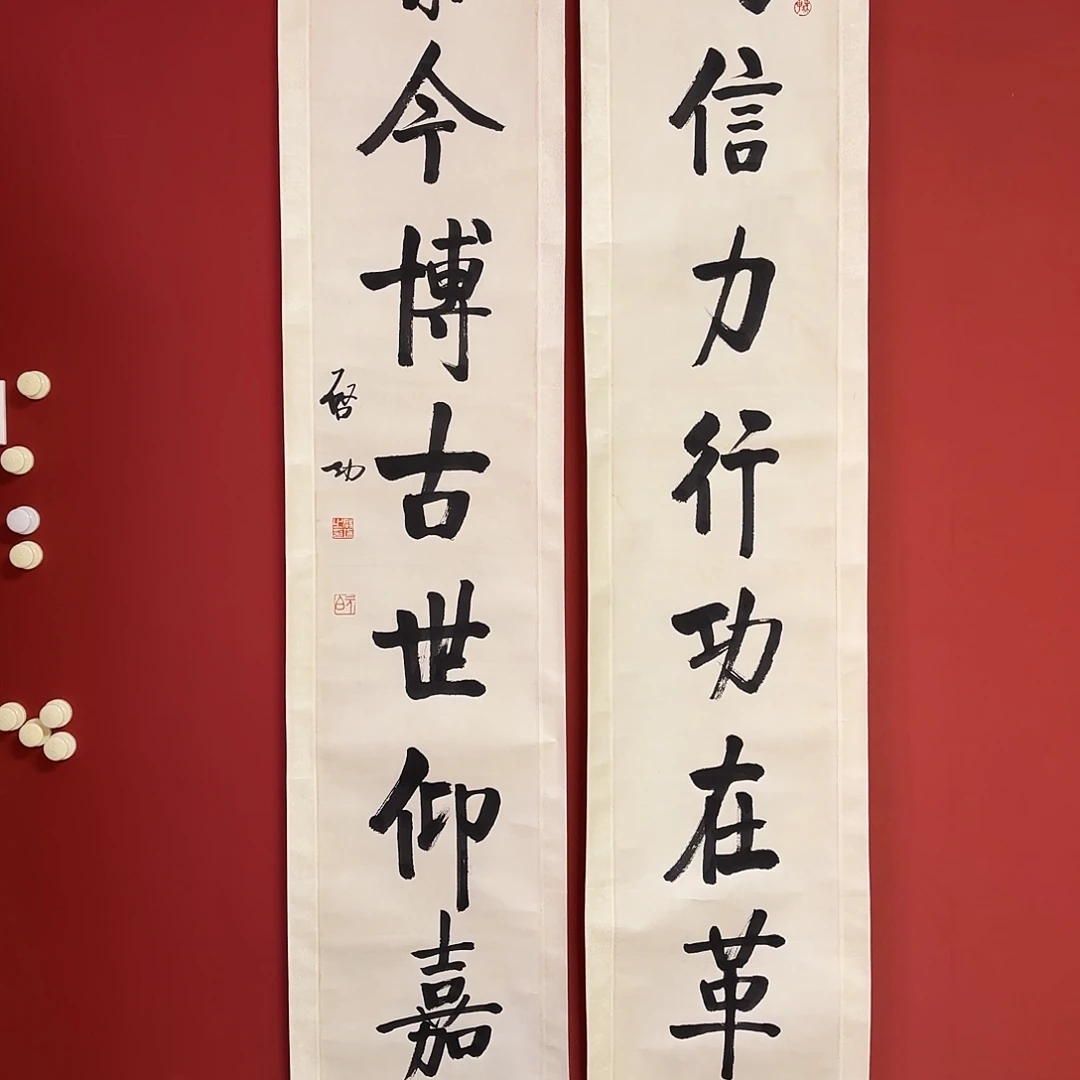 信力行功在革
今博古世仰嘉
启功